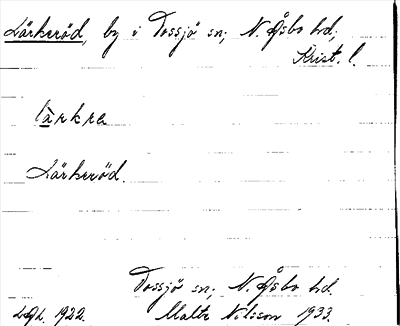 Lärkeröd, by i Tossjö sn; N. Åsbo hd;
Krist. l.
lärkra
Lärkeröd.
Tossjö sn; N. Åsbo hd.
1922. Malte Nilsson 1933.